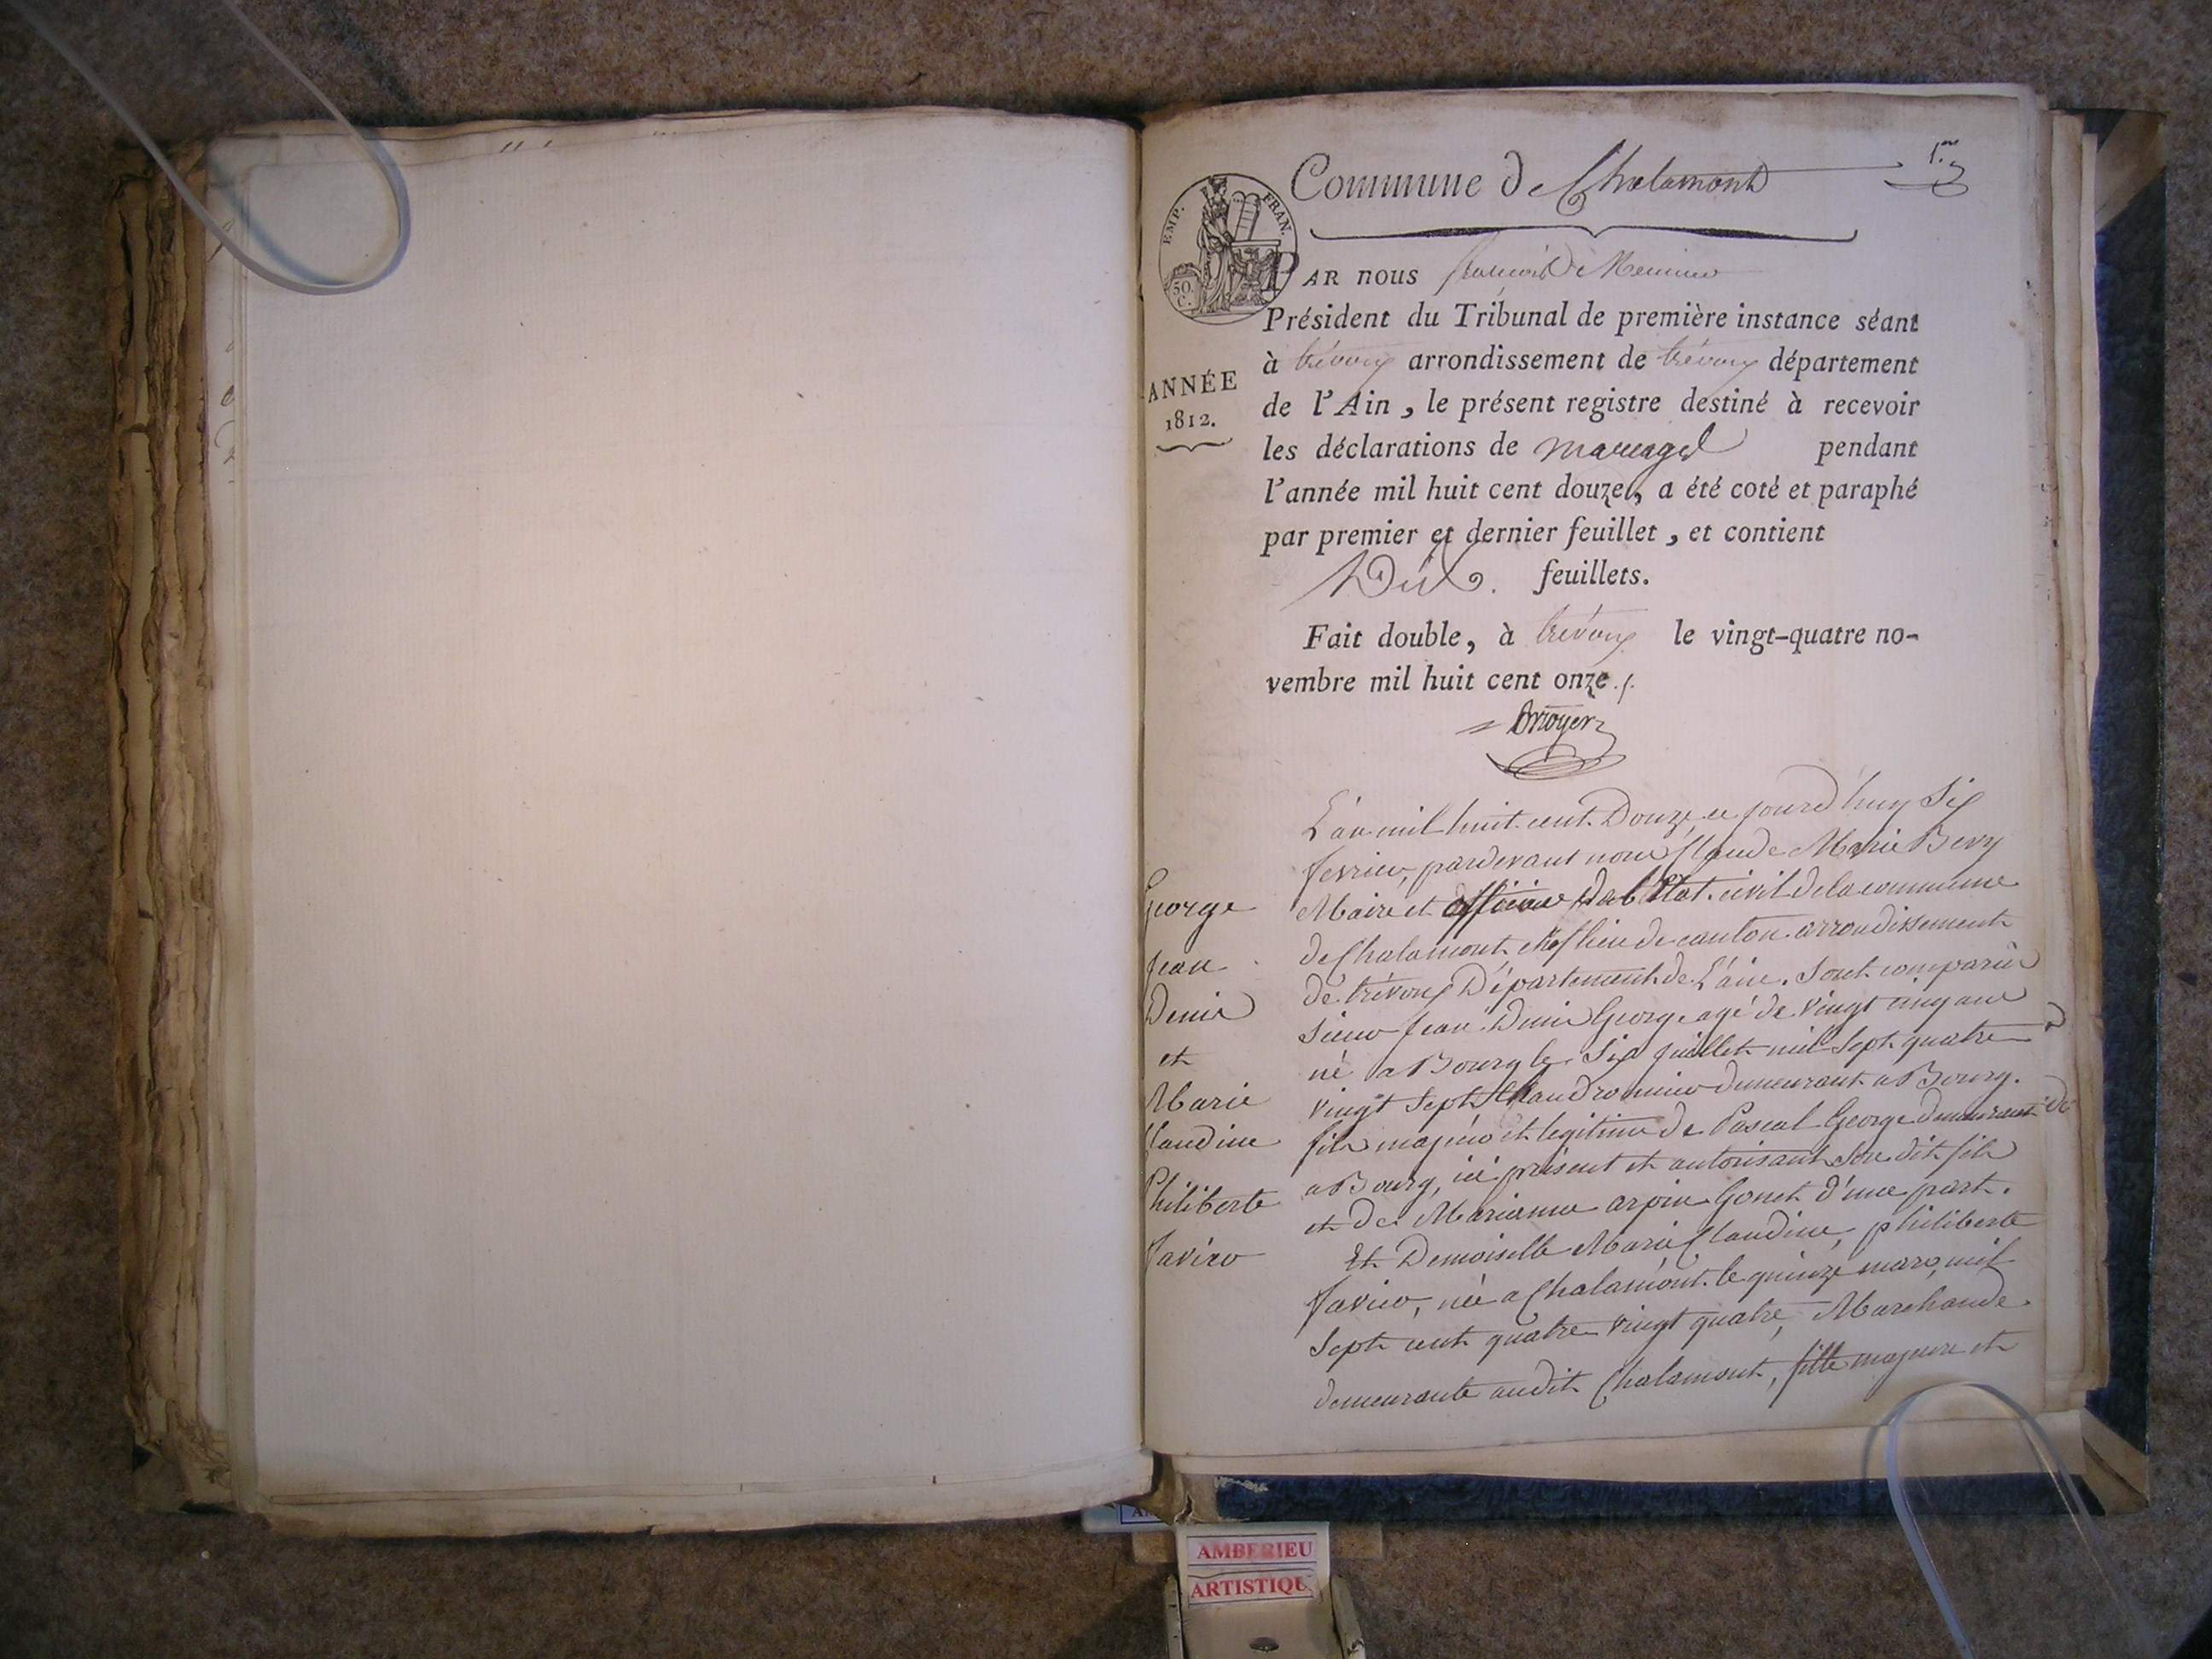 Commune de Chalamont
1.er
EMP. FRAN.
50. C.
PAR nous
Président du Tribunal de première instance séant
à trévoux arrondissement de trévoux département
de l'Ain, le présent registre destiné à recevoir
les déclarations de mariages pendant
l'année mil huit cent douze, a été coté et paraphé
par premier et dernier feuillet, et contient
Dix. feuillets.
Fait double, à trévoux le vingt-quatre no-
vembre mil huit cent onze ./.
ANNÉE
1812.
George
Jean
Denis
et
Marie
Claudine
Philiberte
L'an mil huit cent Douze ce jourd'huy Six
fevrier, pardevant nous Claude Marie
Maire et officier de l'Etat civil de la commune
de Chalamont, chef lieu de canton arrondissement
de trévoux Département de L'ain. Sont comparus
Sieur Jean Denis George agé de vingt cinq ans
né a Bourg le Six juillet mil Sept quatre
vingt Sept demeurant a Bourg.
fils majeur et legitime de Pascal George demeurant
a Bourg, ici présent et autorisant son dit fils
et de Marianne arpin Gonet d'une part.
Et Demoiselle Marie Claudine, philiberte
née a Chalamont le quinze mars mil
Sept cent quatre vingt quatre, Marchande
demeurante audit Chalamont, fille majeure et
AMBERIEU
ARTISTIQU